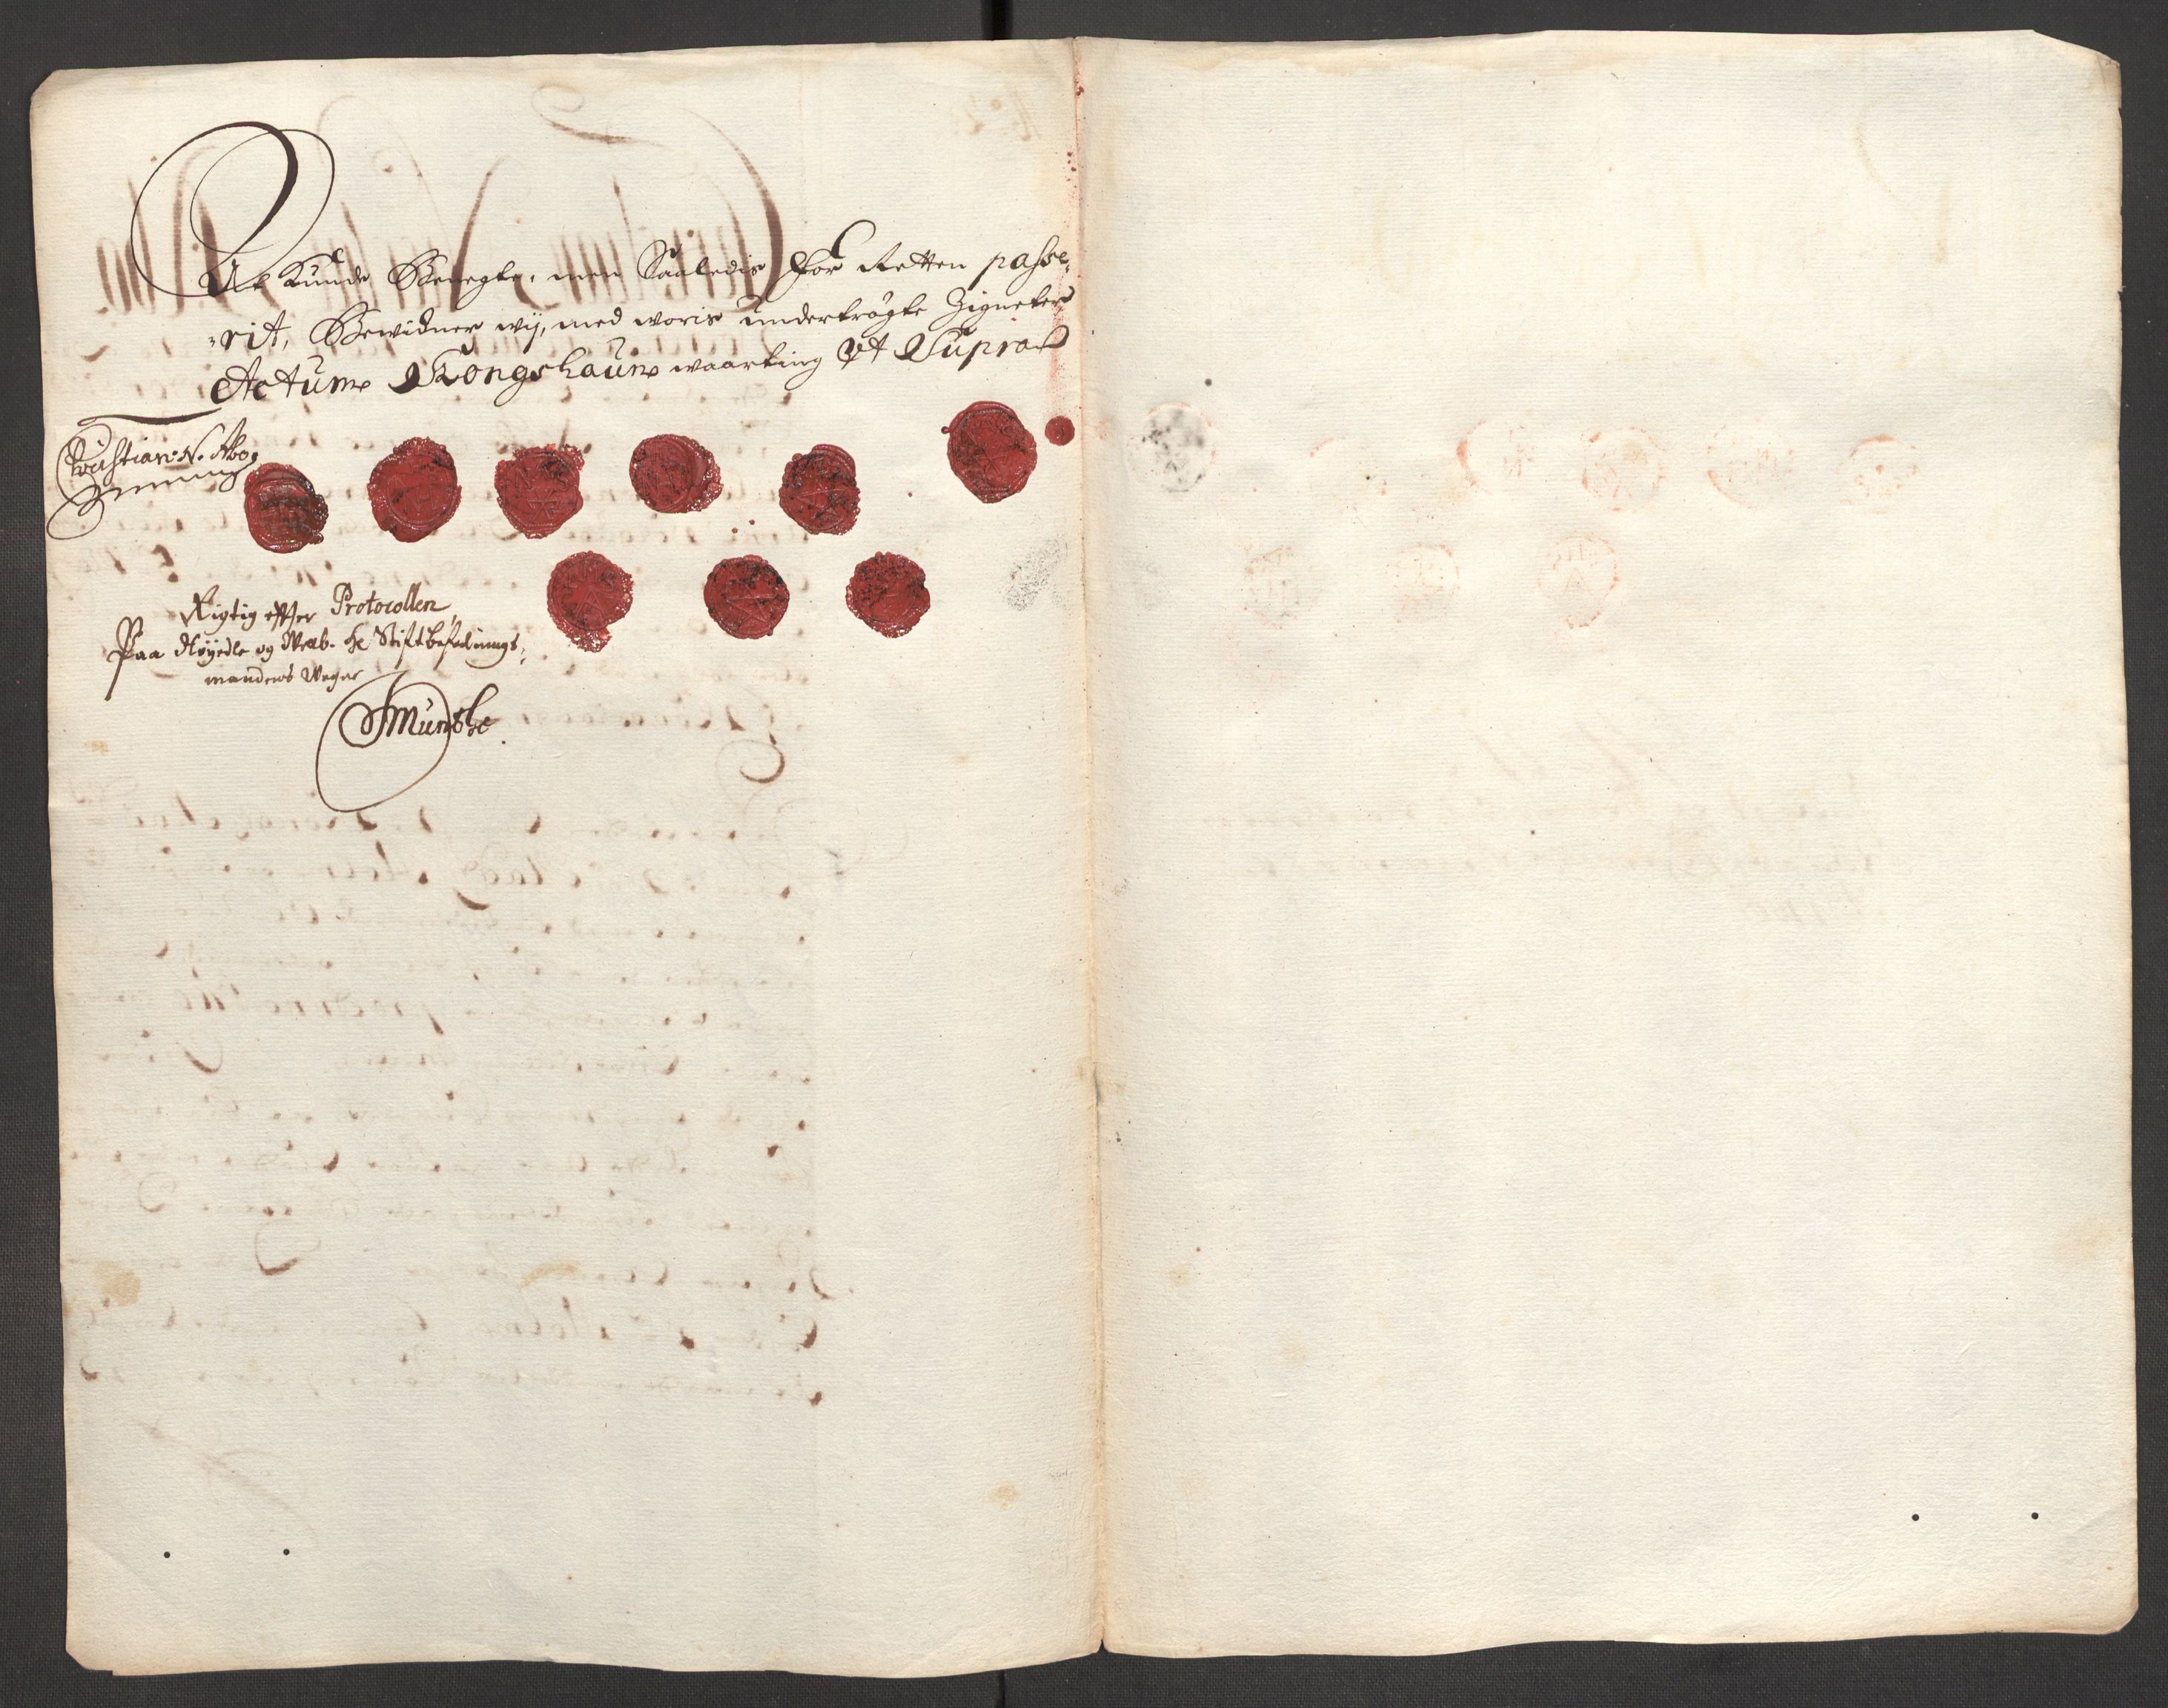 At Kunde Benegte, men Saaledis for Retten passe,
"rit, Bewidner wij, med woris undertrögte Zigneter
Actum Kongshaun waarting Vt Supra
Christian: N. Abo,
Rigtig effter Protocollen,
Paa Höyedle og Welb. Hr Stiftbefalings,
mandens Wegne
Munthe